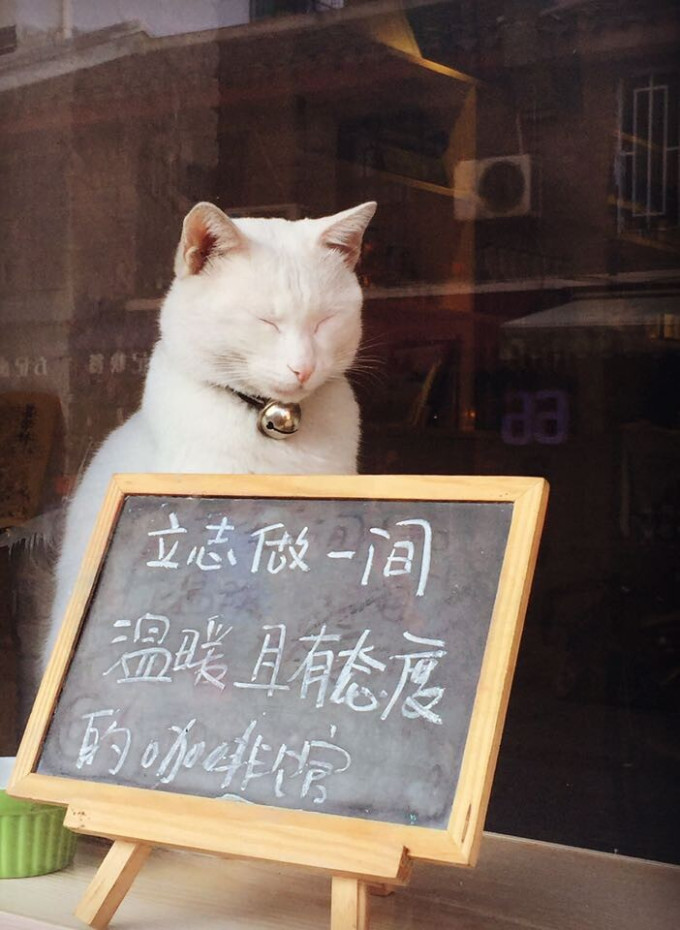 立志做一间
温暖且有态度
的咖啡馆